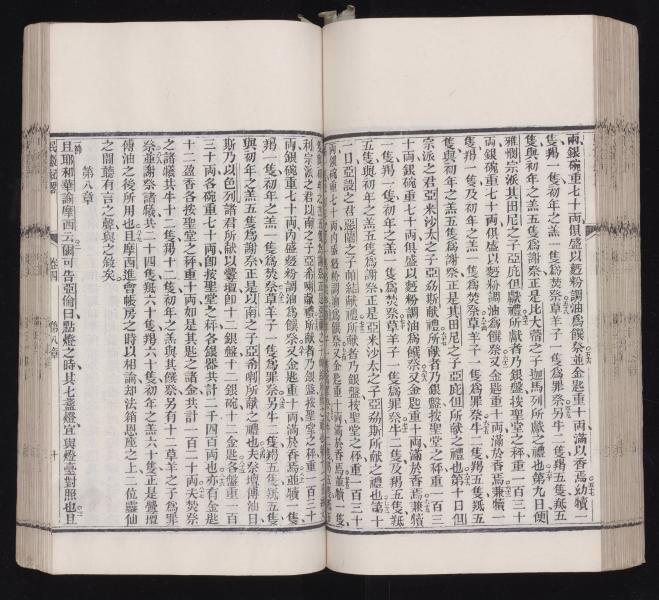 兩銀碗重七十兩俱盛以麪粉調油爲饌祭並金匙重十兩滿以香焉幼犢一
隻羯一隻初年之羔一隻爲焚祭草羊子一隻爲罪祭另牛二隻羯五隻羝五
隻與初年之羔五隻爲謝祭正是比大蓿之子㧓馬列所獻之禮也第九日便
雅憫宗派其田尼之子亞庇但獻禮所獻者乃銀盤按聖堂之秤重一百三十
兩銀碗重七十兩俱盛以麪粉調油爲饌祭又金匙重十兩滿於香焉兼犢一
隻羯一隻及初年之羔一隻爲焚祭草羊子一隻爲罪祭牛二隻羯五隻羝五
隻與初年之羔五隻爲謝祭正是其田尼之子亞庇但所獻之禮也第十日但
宗派之君亞米沙太之子亞希斯獻禮所獻者乃銀盤按聖堂之秤重一百三
十兩銀碗重七十兩俱盛以麪粉調油爲饌祭又金匙重十兩滿於香焉兼犢
一隻羯一隻初年之羔一隻爲焚祭草羊子一隻爲罪祭牛二隻及羯五隻羝
五隻與初年之羔五隻爲謝祭正是亞米沙太之子亞希斯所獻之禮也第十
一日亞設之君
兩銀碗重七十兩內盛麪粉調油爲饌祭又金匙重十兩滿於香焉兼犢一隻
利宗派之君以南之子亞希喇獻禮所獻者乃銀盤按聖堂之秤重一百三十
兩銀碗重七十兩內盛麪粉調油爲饌祭又金匙重十兩滿於香焉並犢一隻
羯一隻初年之羔一隻爲焚祭草羊子一隻爲罪祭另牛二隻羯五隻羝五隻
與初年之羔五隻爲謝祭正是以南之子亞希喇所獻之禮也夫祭壇傅油日
斯乃以色列諸君所獻以璺壇卽十二銀盤十二銀碗十二金匙各盤重一百
三十兩各碗重七十兩卽按聖堂之秤各銀器共計二千四百兩也亦有金匙
十二盈香各按聖堂之秤重十兩如是其匙之諸金共計一百二十兩夫焚祭
之諸犧共牛十二隻羯十二隻初年之羔與其饌祭另有十二草羊之子爲罪
祭並謝祭諸犧共二十四隻羝六十隻羯六十隻初年之羔六十隻正是璺壇
傅油之後所用也且摩西進會帳房之時以相諭却法箱恩座之上二位靈仙
之間聽有言之聲與之敘矣
第八章
且耶和華諭摩西云爾可告亞倫曰點燈之時其七盞燈宜與燈臺對照也且
卷四
第八章
十